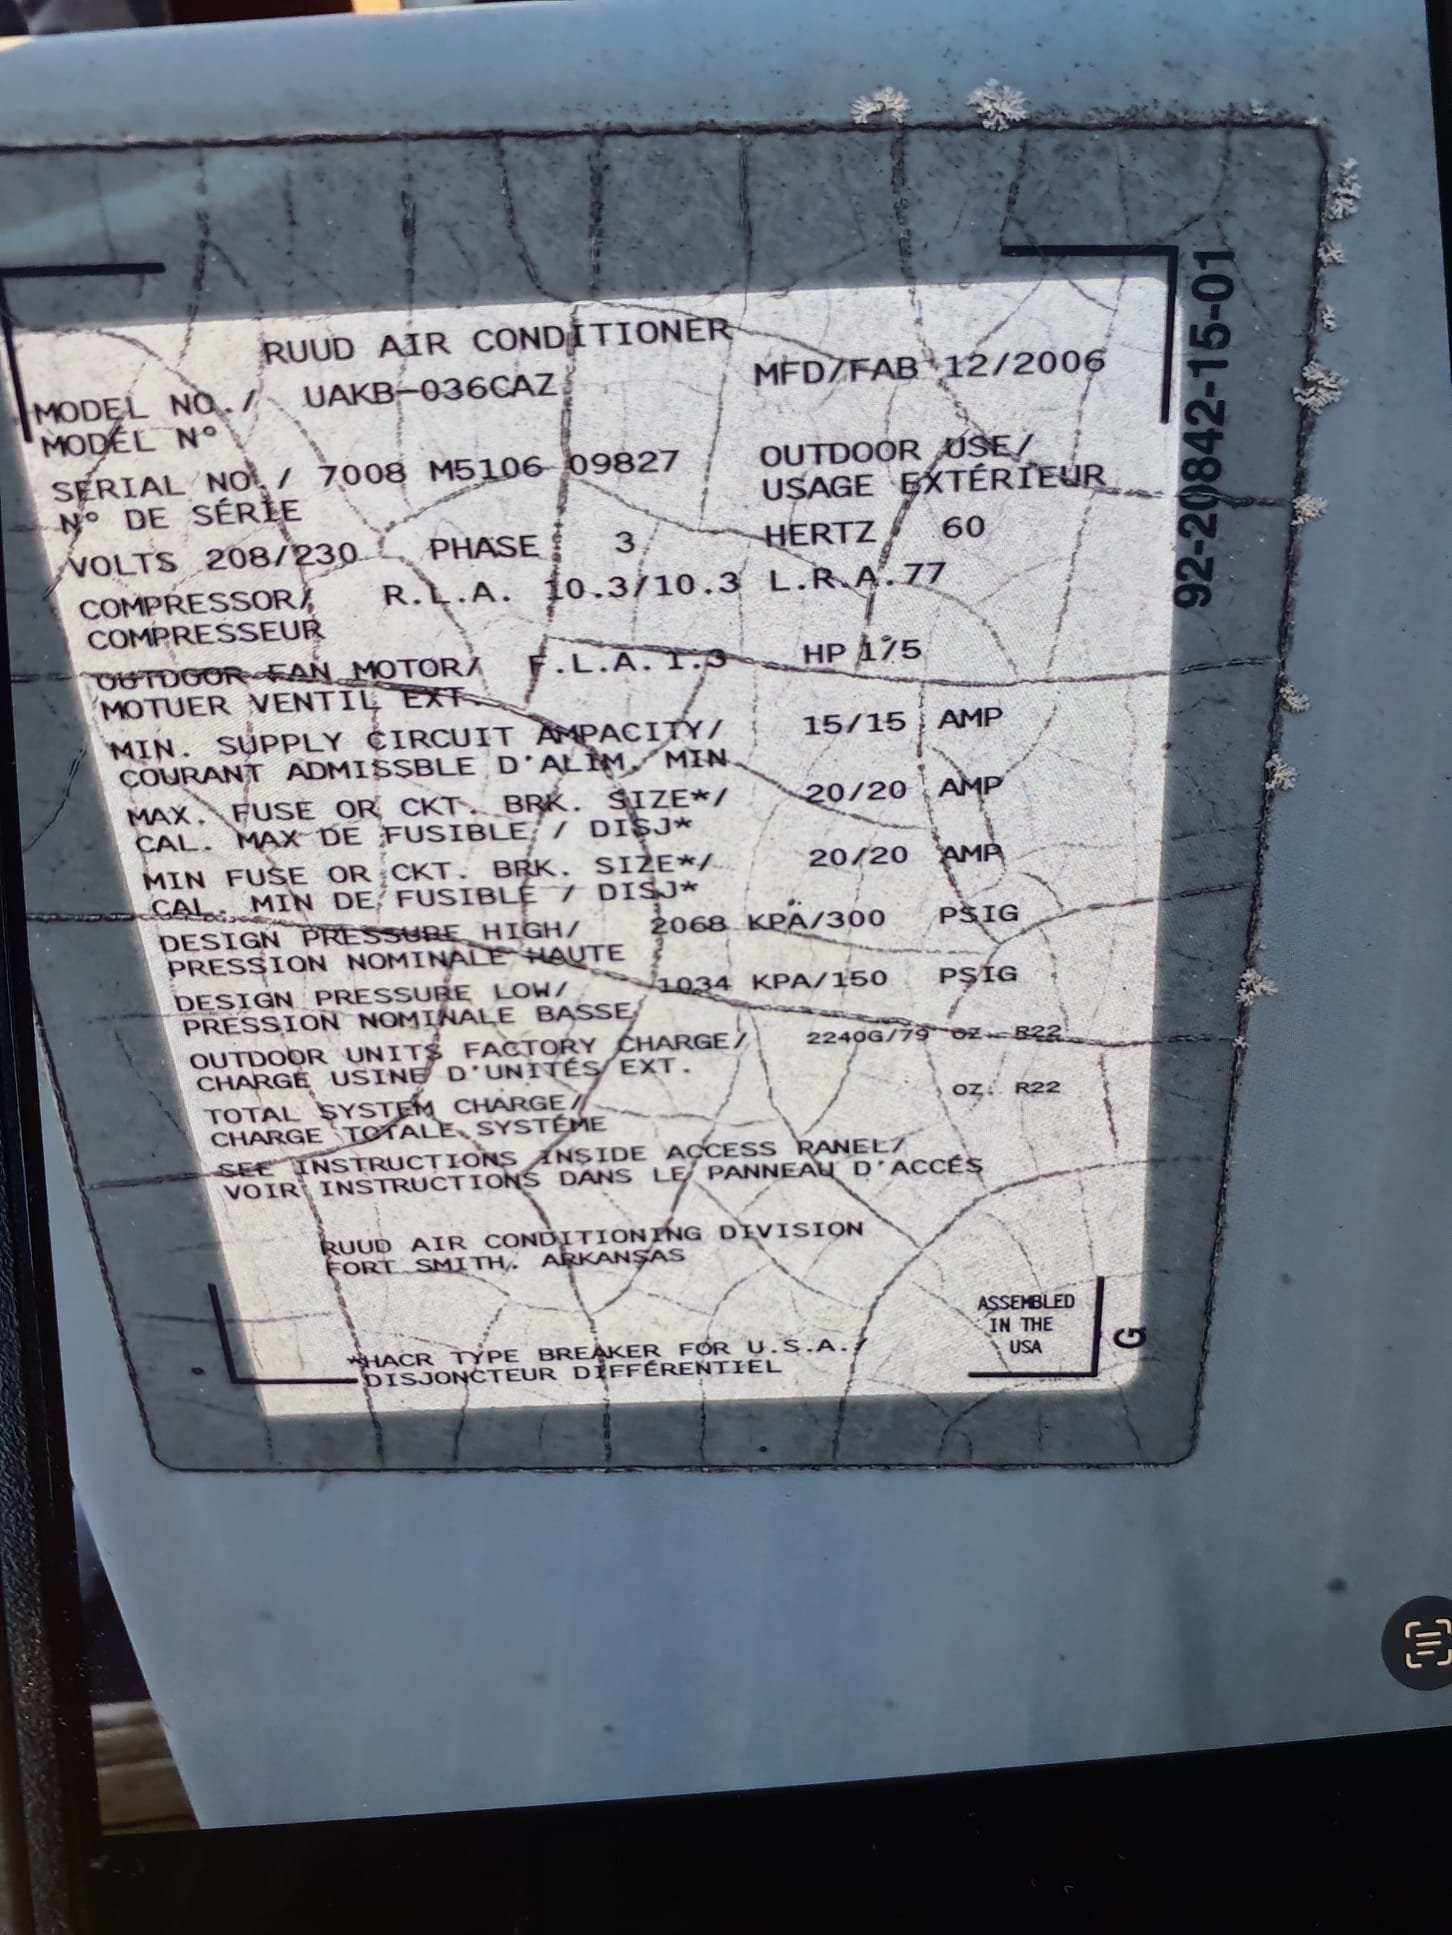 RUUD AIR CONDITIONER
MODEL NO./ UAKB-036CAZ MFD/FAB 12/2006
MODÉL N°
SERIAL NO./ 7008 M5106 09827 OUTDOOR USE/
N° DE SÉRIE USAGE EXTÉRIEUR
VOLTS 208/230 PHASE 3 HERTZ 60
COMPRESSOR/ R.L.A. 10.3/10.3 L.R.A.77
COMPRESSEUR
OUTDOOR FAN MOTOR/ F.L.A.1.3 HP 1/5
MOTUER VENTIL EXT.
MIN. SUPPLY CIRCUIT AMPACITY/ 15/15 AMP
COURANT ADMISSBLE D'ALIM. MIN
MAX. FUSE OR CKT. BRK. SIZE*/ 20/20 AMP
CAL. MAX DE FUSIBLE / DISJ*
MIN FUSE OR CKT. BRK. SIZE*/ 20/20 AMP
CAL. MIN DE FUSIBLE / DISJ*
DESIGN PRESSURE HIGH/ 2068 KPA/300 PSIG
PRESSION NOMINALE HAUTE
DESIGN PRESSURE LOW/ 1034 KPA/150 PSIG
PRESSION NOMINALE BASSE
OUTDOOR UNITS FACTORY CHARGE/ 2240G/79 OZ. R22
CHARGE USINE D'UNITÉS EXT.
TOTAL SYSTEM CHARGE/ OZ. R22
CHARGE TOTALE SYSTÉME
SEE INSTRUCTIONS INSIDE ACCESS PANEL/
VOIR INSTRUCTIONS DANS LE PANNEAU D'ACCÉS
RUUD AIR CONDITIONING DIVISION
FORT SMITH, ARKANSAS
ASSEMBLED
IN THE
USA
*HACR TYPE BREAKER FOR U.S.A./
DISJONCTEUR DIFFÉRENTIEL
92-20842-15-01
G